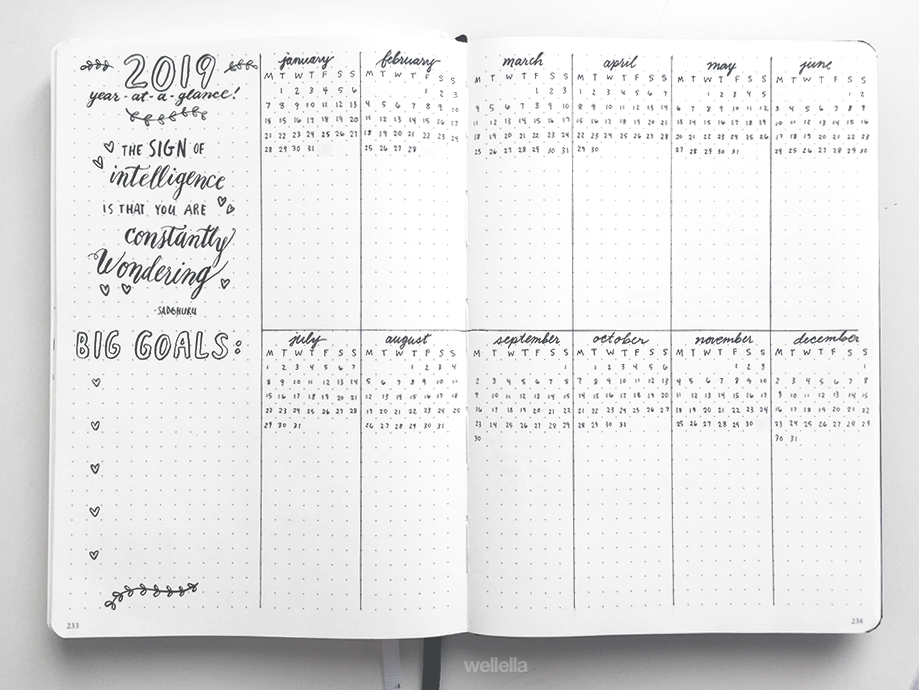 2019
year-at-a-glance!
THE SIGN OF
intelligence
IS THAT YOU ARE
constantly
Wondering
-SADGHURU
BIG GOALS:
233
january
M T W T F S S
1 2 3 4 5 6
7 8 9 10 11 12 13
14 15 16 17 18 19 20
21 22 23 24 25 26 27
28 29 30 31
february
M T W T F S S
1 2 3
4 5 6 7 8 9 10
11 12 13 14 15 16 17
18 19 20 21 22 23 24
25 26 27 28
march
M T W T F S S
1 2 3
4 5 6 7 8 9 10
11 12 13 14 15 16 17
18 19 20 21 22 23 24
25 26 27 28 29 30 31
april
M T W T F S S
1 2 3 4 5 6 7
8 9 10 11 12 13 14
15 16 17 18 19 20 21
22 23 24 25 26 27 28
29 30
may
M T W T F S S
1 2 3 4 5
6 7 8 9 10 11 12
13 14 15 16 17 18 19
20 21 22 23 24 25 26
27 28 29 30 31
june
M T W T F S S
1 2
3 4 5 6 7 8 9
10 11 12 13 14 15 16
17 18 19 20 21 22 23
24 25 26 27 28 29 30
july
M T W T F S S
1 2 3 4 5 6 7
8 9 10 11 12 13 14
15 16 17 18 19 20 21
22 23 24 25 26 27 28
29 30 31
august
M T W T F S S
1 2 3 4
5 6 7 8 9 10 11
12 13 14 15 16 17 18
19 20 21 22 23 24 25
26 27 28 29 30 31
september
M T W T F S S
1
2 3 4 5 6 7 8
9 10 11 12 13 14 15
16 17 18 19 20 21 22
23 24 25 26 27 28 29
30
october
M T W T F S S
1 2 3 4 5 6
7 8 9 10 11 12 13
14 15 16 17 18 19 20
21 22 23 24 25 26 27
28 29 30 31
november
M T W T F S S
1 2 3
4 5 6 7 8 9 10
11 12 13 14 15 16 17
18 19 20 21 22 23 24
25 26 27 28 29 30
december
M T W T F S S
1
2 3 4 5 6 7 8
9 10 11 12 13 14 15
16 17 18 19 20 21 22
23 24 25 26 27 28 29
30 31
234
wellella